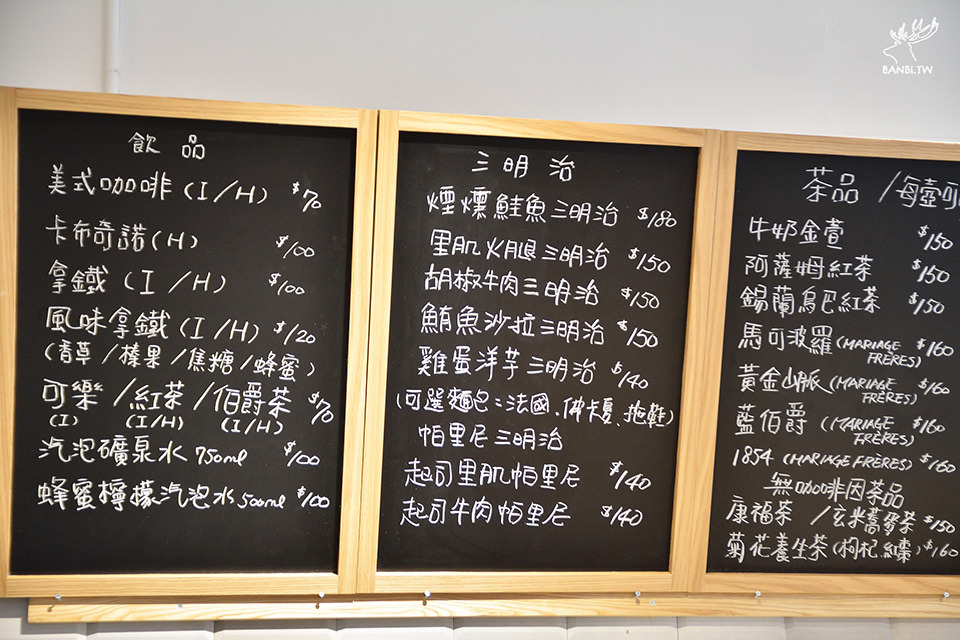 BANBI.TW
飲品
美式咖啡 (I/H) $70
卡布奇諾 (H) $100
拿鐵 (I/H) $100
風味拿鐵 (I/H) $120
(香草/榛果/焦糖/蜂蜜)
可樂/紅茶/伯爵茶 $70
(I) (I/H) (I/H)
汽泡礦泉水 750ml $100
蜂蜜檸檬汽泡水 500ml $100
三明治
煙燻鮭魚三明治 $180
里肌火腿三明治 $150
胡椒牛肉三明治 $150
鮪魚沙拉三明治 $150
雞蛋洋芋三明治 $140
(可選麵包:法國、佛卡夏、拖鞋)
帕里尼三明治
起司里肌帕里尼 $140
起司牛肉帕里尼 $140
茶品 /每壺可
牛奶金萱 $150
阿薩姆紅茶 $150
錫蘭烏巴紅茶 $150
馬可波羅 (MARIAGE FRÈRES) $160
黃金山脈 (MARIAGE FRÈRES) $160
藍伯爵 (MARIAGE FRÈRES) $160
1854 (MARIAGE FRÈRES) $160
無咖啡因茶品
康福茶 /玄米蕎麥茶 $150
菊花養生茶(枸杞、紅棗) $160